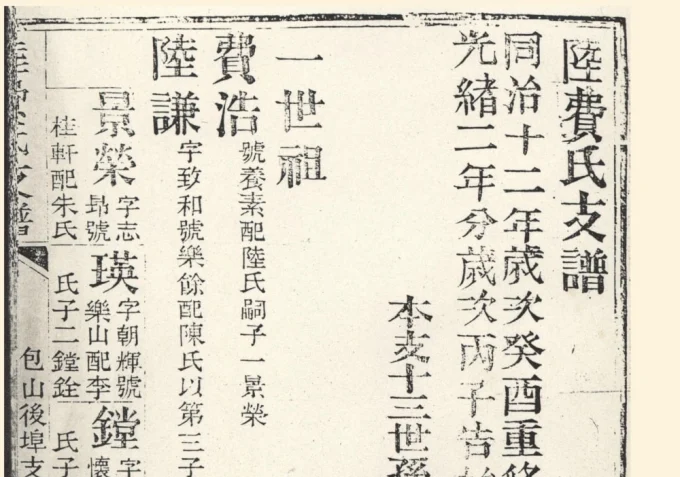 陸費氏支譜
同治十二年歲次癸酉重修
光緒二年分歲次丙子告
本支十三世孫
一世祖
費浩 號養素配陸氏嗣子一景榮
陸謙 字致和號樂餘配陳氏以第三子
景榮 字志
昻號
桂軒配朱氏
瑛 字朝輝號
樂山配李
氏子二鏜銓
鏜 字
懷
氏子
支譜
包山後埠支